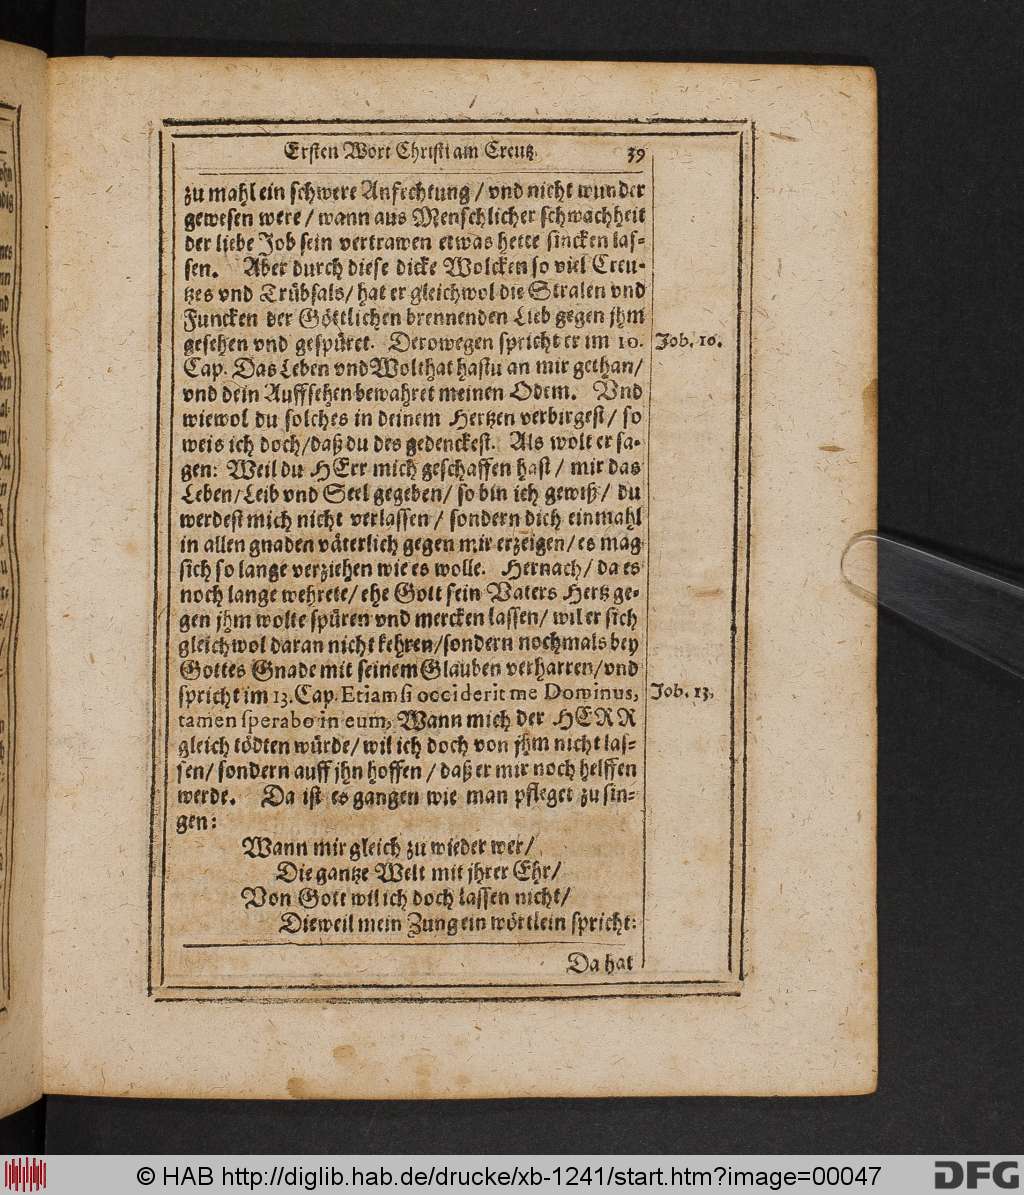 Ersten Wort Christi am Creutz. 39
zu mahl ein schwere Anfechtung / vnd nicht wunder
gewesen were / wann aus Menschlicher schwachheit
der liebe Job sein vertrawen etwas hette sincken las-
sen. Aber durch diese dicke Wolcken so viel Creu-
tzes vnd Trübsals / hat er gleichwol die Stralen vnd
Funcken der Göttlichen brennenden Lieb gegen jhm
gesehen vnd gespüret. Derowegen spricht er im 10. Job. 10.
Cap. Das Leben vnd Wolthat hastu an mir gethan /
vnd dein Auffsehen bewahret meinen Odem. Vnd
wiewol du solches in deinem Hertzen verbirgest / so
weis ich doch / daß du des gedenckest. Als wolt er sa-
gen: Weil du HErr mich geschaffen hast / mir das
Leben / Leib vnd Seel gegeben / so bin ich gewiß / du
werdest mich nicht verlassen / sondern dich einmahl
in allen gnaden väterlich gegen mir erzeigen / es mag
sich so lange verziehen wie es wolle. Hernach / da es
noch lange wehrete / ehe Gott sein Vaters Hertz ge-
gen jhm wolte spüren vnd mercken lassen / wil er sich
gleichwol daran nicht kehren / sondern nochmals bey
Gottes Gnade mit seinem Glauben verharren / vnd
spricht im 13. Cap. Etiamsi occiderit me Dominus, Job. 13.
tamen sperabo in eum, Wann mich der HERR
gleich tödten würde / wil ich doch von jhm nicht las-
sen / sondern auff jhn hoffen / daß er mir noch helffen
werde. Da ist es gangen wie man pfleget zu sin-
gen:
Wann mir gleich zu wieder wer /
Die gantze Welt mit jhrer Ehr /
Von Gott wil ich doch lassen nicht /
Dieweil mein Zung ein wörtlein spricht:
Da hat
© HAB http://diglib.hab.de/drucke/xb-1241/start.htm?image=00047
DFG